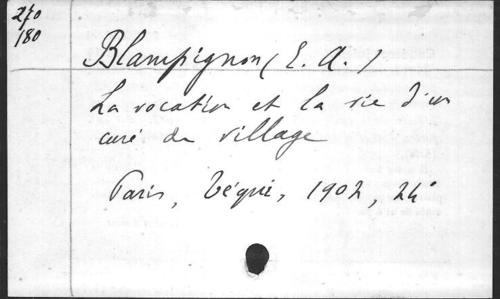 270
180
Blampignon (E. A.)
La vocation et la vie d'un
curé de village
Paris, Téqui, 1902, 24°